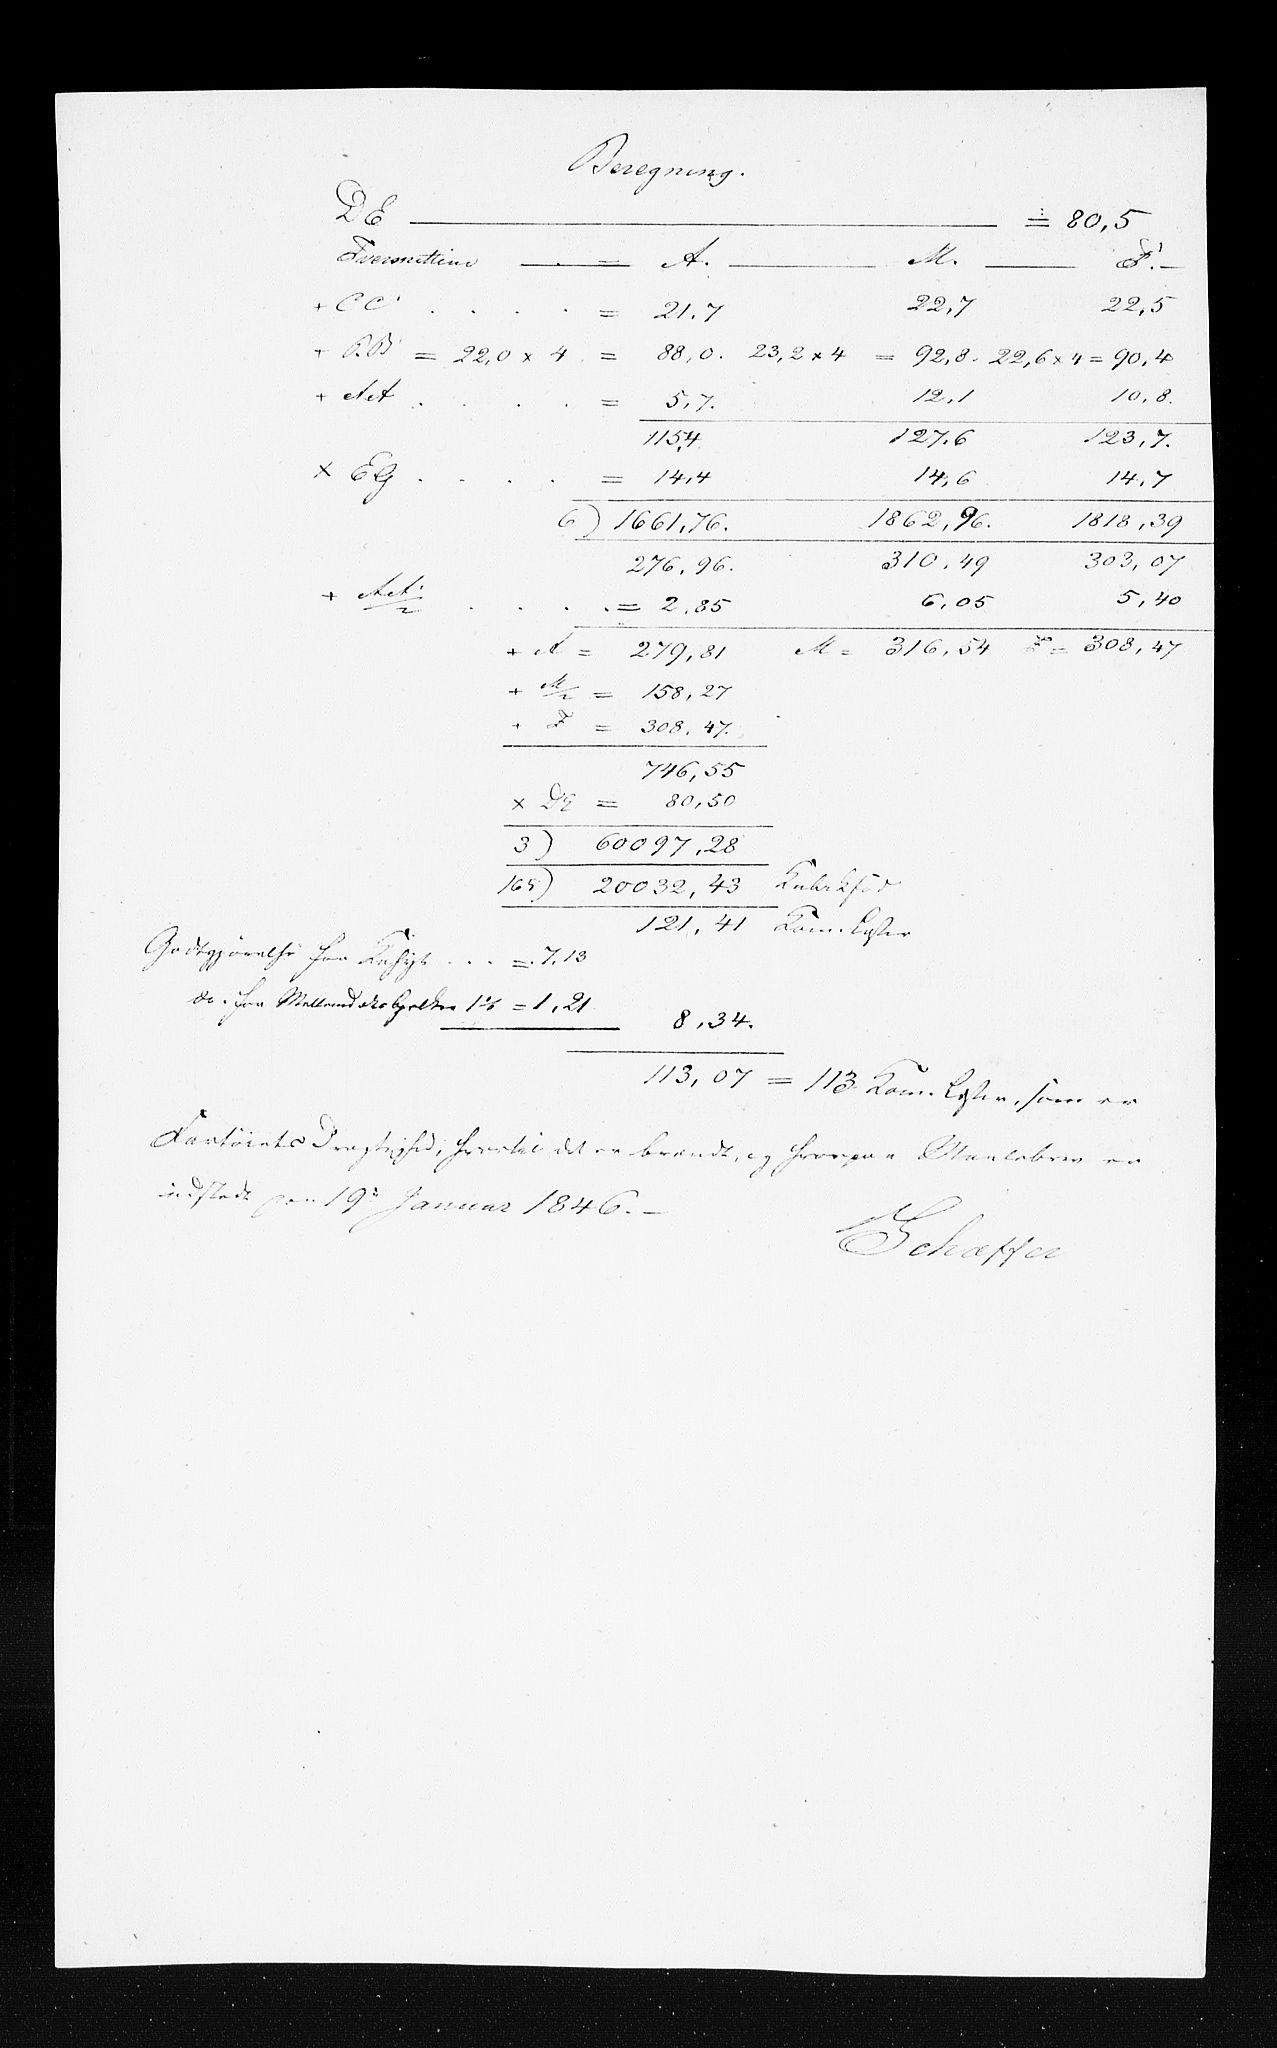 Beregning.
DE = 80,5
Tversnittene = A. M. F.
+ CC' . . . . = 21,7 22,7 22,5
+ BB' = 22,0 x 4 = 88,0. 23,2 x 4 = 92,8. 22,6 x 4 = 90,4
+ AA' . . . . = 5,7. 12,1 10,8.
115,4 127,6 123,7.
x EG . . . . = 14,4 14,6 14,7
6) 1661,76. 1862,96. 1818,39
276,96. 310,49 303,07
+ AA'/2 . . . . = 2,85 6,05 5,40
+ A = 279,81 M = 316,54 F = 308,47
+ M/2 = 158,27
+ F = 308,47.
746,55
x DE = 80,50
3) 60097,28
165) 20032,43 Kubikfod
121,41 Kom. Læster
Godtgjørelse for Kahyt . . . = 7.13
do. for 1% = 1,21
8,34.
113,07 = 113 Kom. Læster, som er
Fartøiets Drægtighed, hvortil det er brændt, og hvorpaa Maalebrev er
udstedt den 19de Januar 1846. –
Schæffer